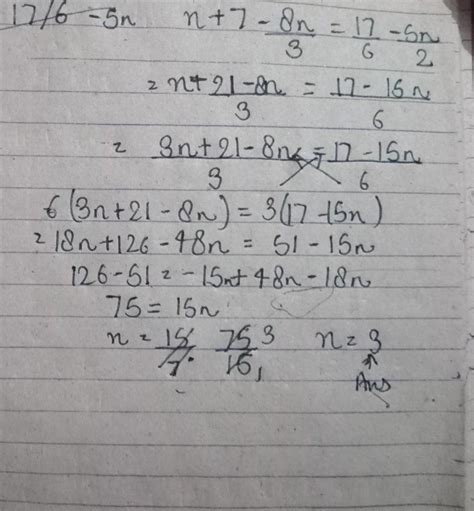 17/6 - 5n n + 7 - 8n/3 = 17/6 - 5n/2
= n + 21 - 8n/3 = 17 - 15n/6
= 3n + 21 - 8n/3 = 17 - 15n/6
6(3n + 21 - 8n) = 3(17 - 15n)
= 18n + 126 - 48n = 51 - 15n
126 - 51 = -15n + 48n - 18n
75 = 15n
n = 15 75/15 3 1 n = 3
Ans